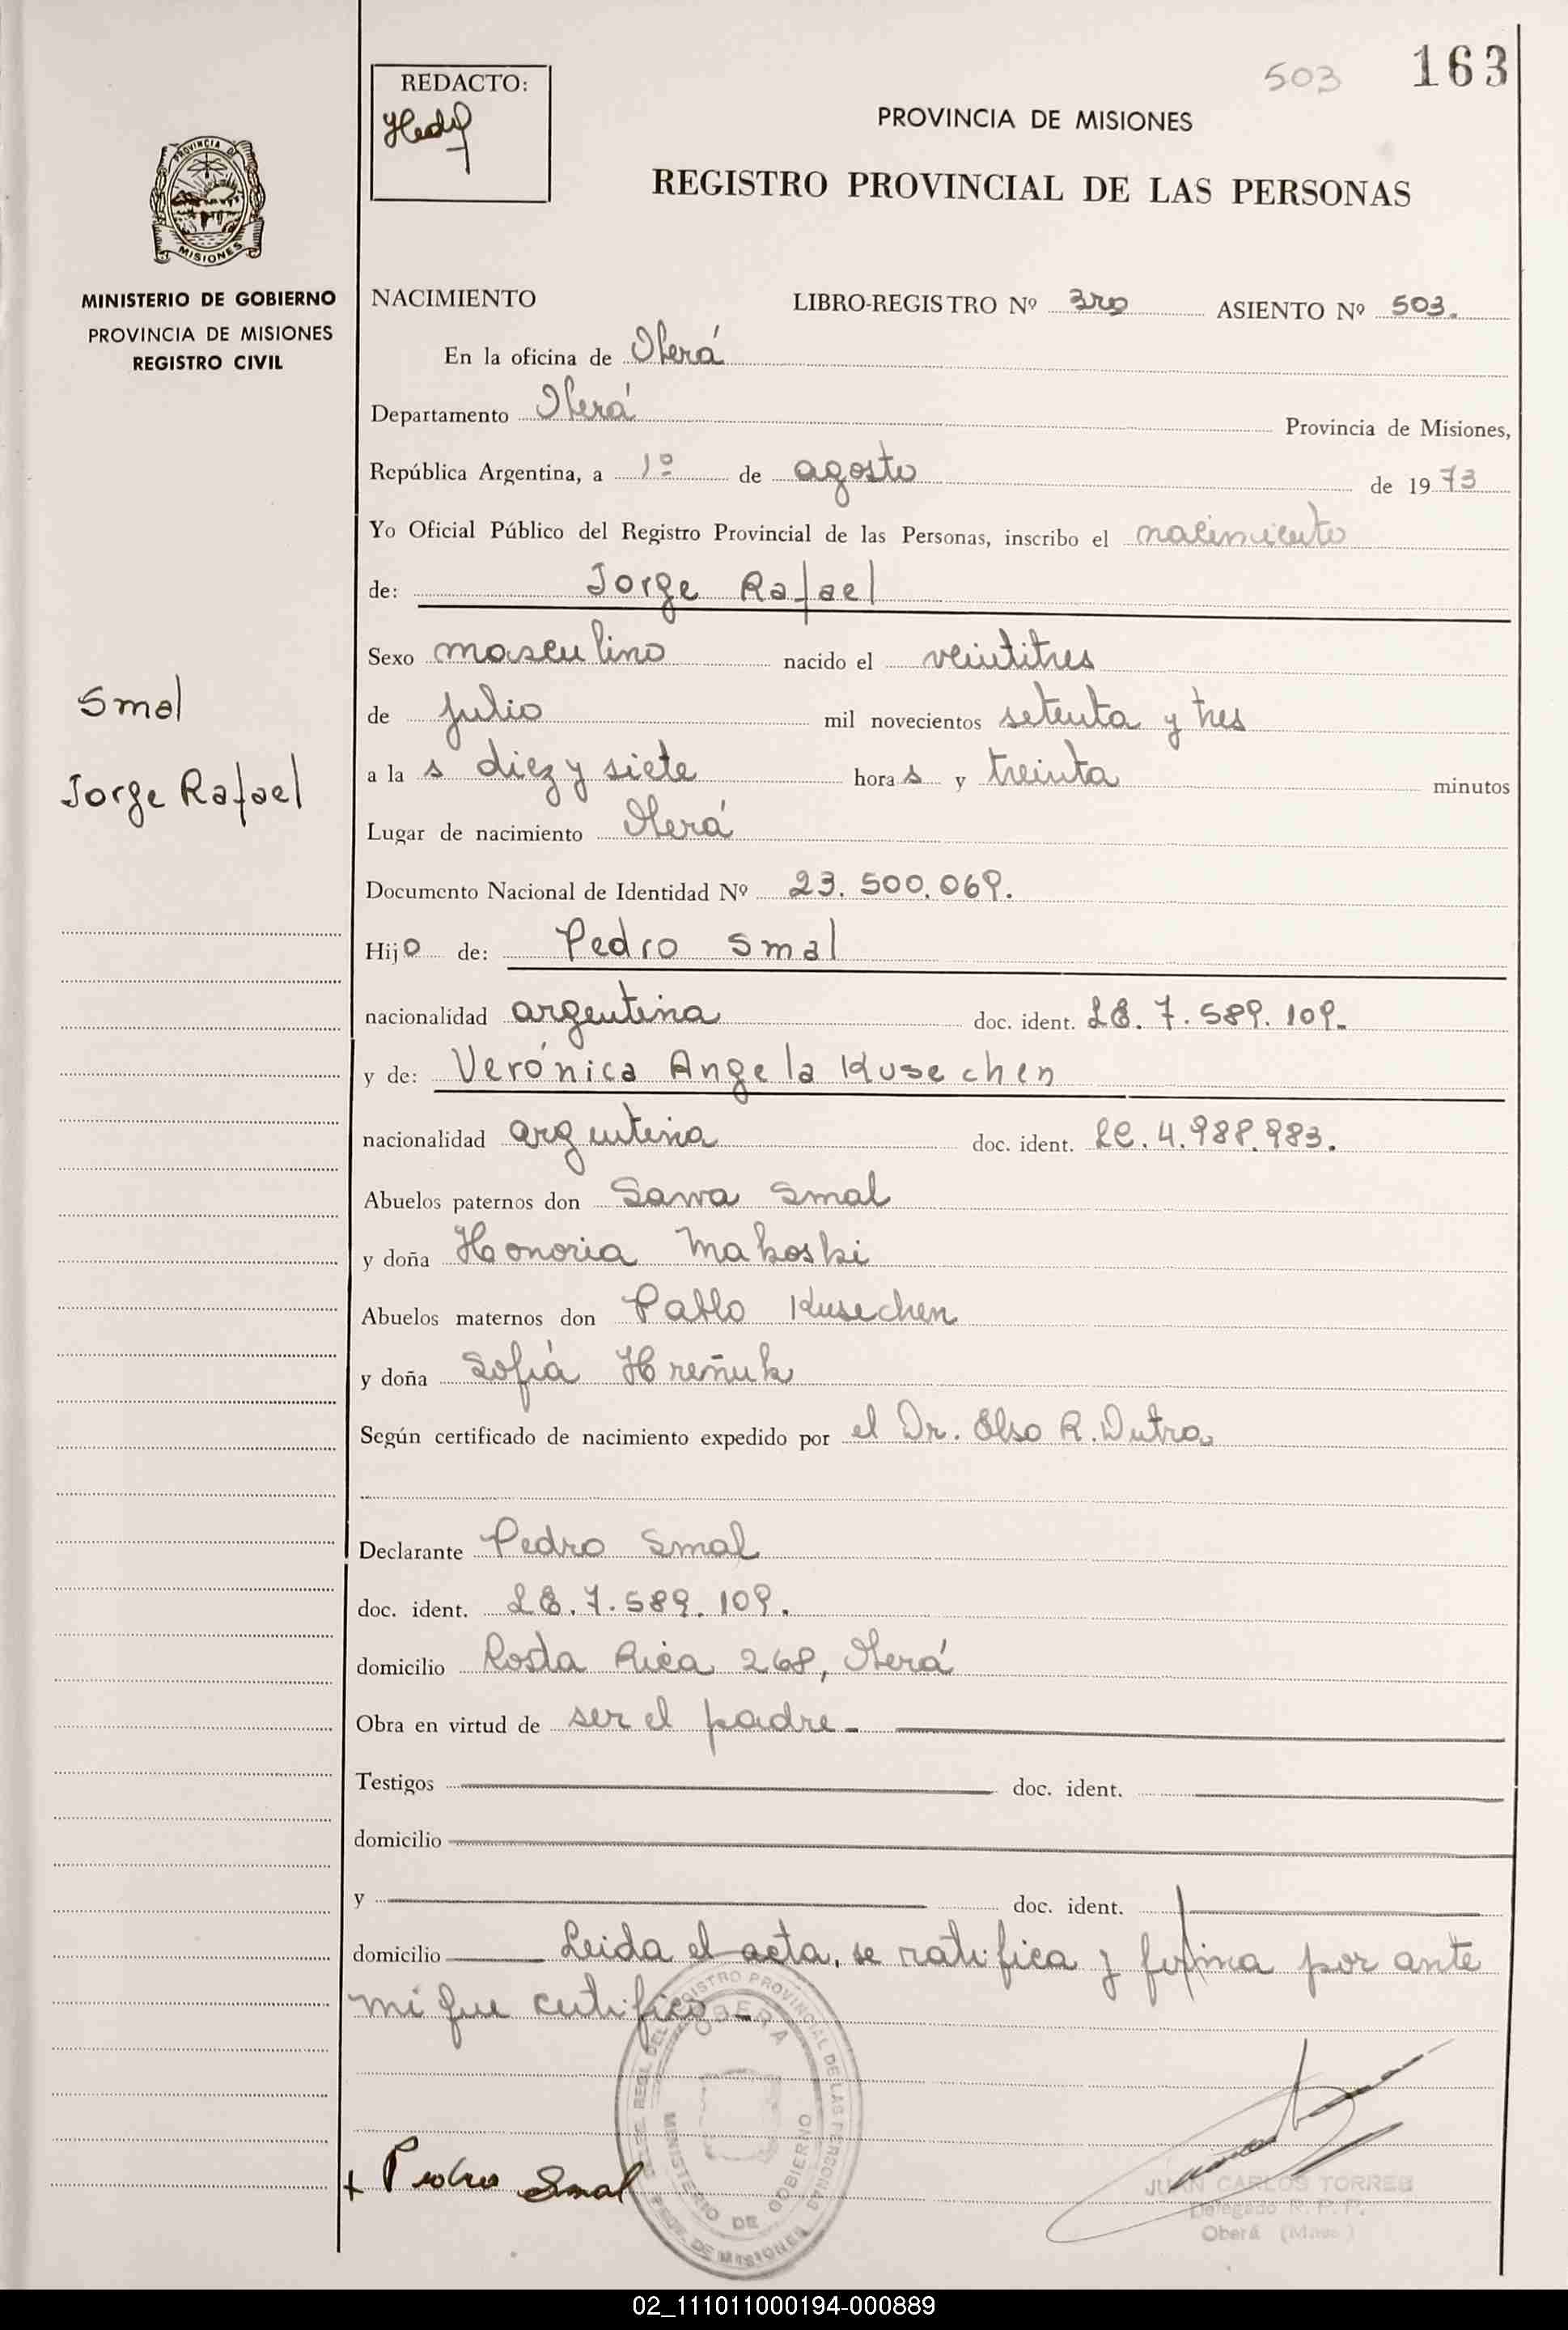 503 163
REDACTO:
PROVINCIA DE MISIONES
REGISTRO PROVINCIAL DE LAS PERSONAS
PROVINCIA DE
MISIONES
MINISTERIO DE GOBIERNO
PROVINCIA DE MISIONES
REGISTRO CIVIL
NACIMIENTO LIBRO-REGISTRO Nº 3ro ASIENTO Nº 503.
En la oficina de Oberá
Departamento Oberá Provincia de Misiones,
República Argentina, a 1º de agosto de 1973
Yo Oficial Público del Registro Provincial de las Personas, inscribo el nacimiento
de: Jorge Rafael
Sexo masculino nacido el veintitres
Smal
de julio mil novecientos setenta y tres
Jorge Rafael
a las diez y siete horas y treinta minutos
Lugar de nacimiento Oberá
Documento Nacional de Identidad Nº 23.500.069.
Hijo de: Pedro Smal
nacionalidad argentina doc. ident. LE. 7.589.109.
y de: Verónica Angela Kusechen
nacionalidad argentina doc. ident. LC. 4.988.983.
Abuelos paternos don Sawa Smal
y doña Honoria Makoski
Abuelos maternos don Pablo Kusechen
y doña Sofía Hreñuk
Según certificado de nacimiento expedido por el Dr. Elso R. Dutra
Declarante Pedro Smal
doc. ident. LE. 7.589.109.
domicilio Costa Rica 268, Oberá
Obra en virtud de ser el padre.-
Testigos doc. ident.
domicilio
y doc. ident.
domicilio Leida el acta, se ratifica y firma por ante
mi que certifico.-
REGISTRO PROVINCIAL DE LAS PERSONAS
OBERA
MINISTERIO DE GOBIERNO
DE MISIONES
Pedro Smal
JUAN CARLOS TORRES
Delegado R. P. P.
Oberá (Mnes)
02_111011000194-000889